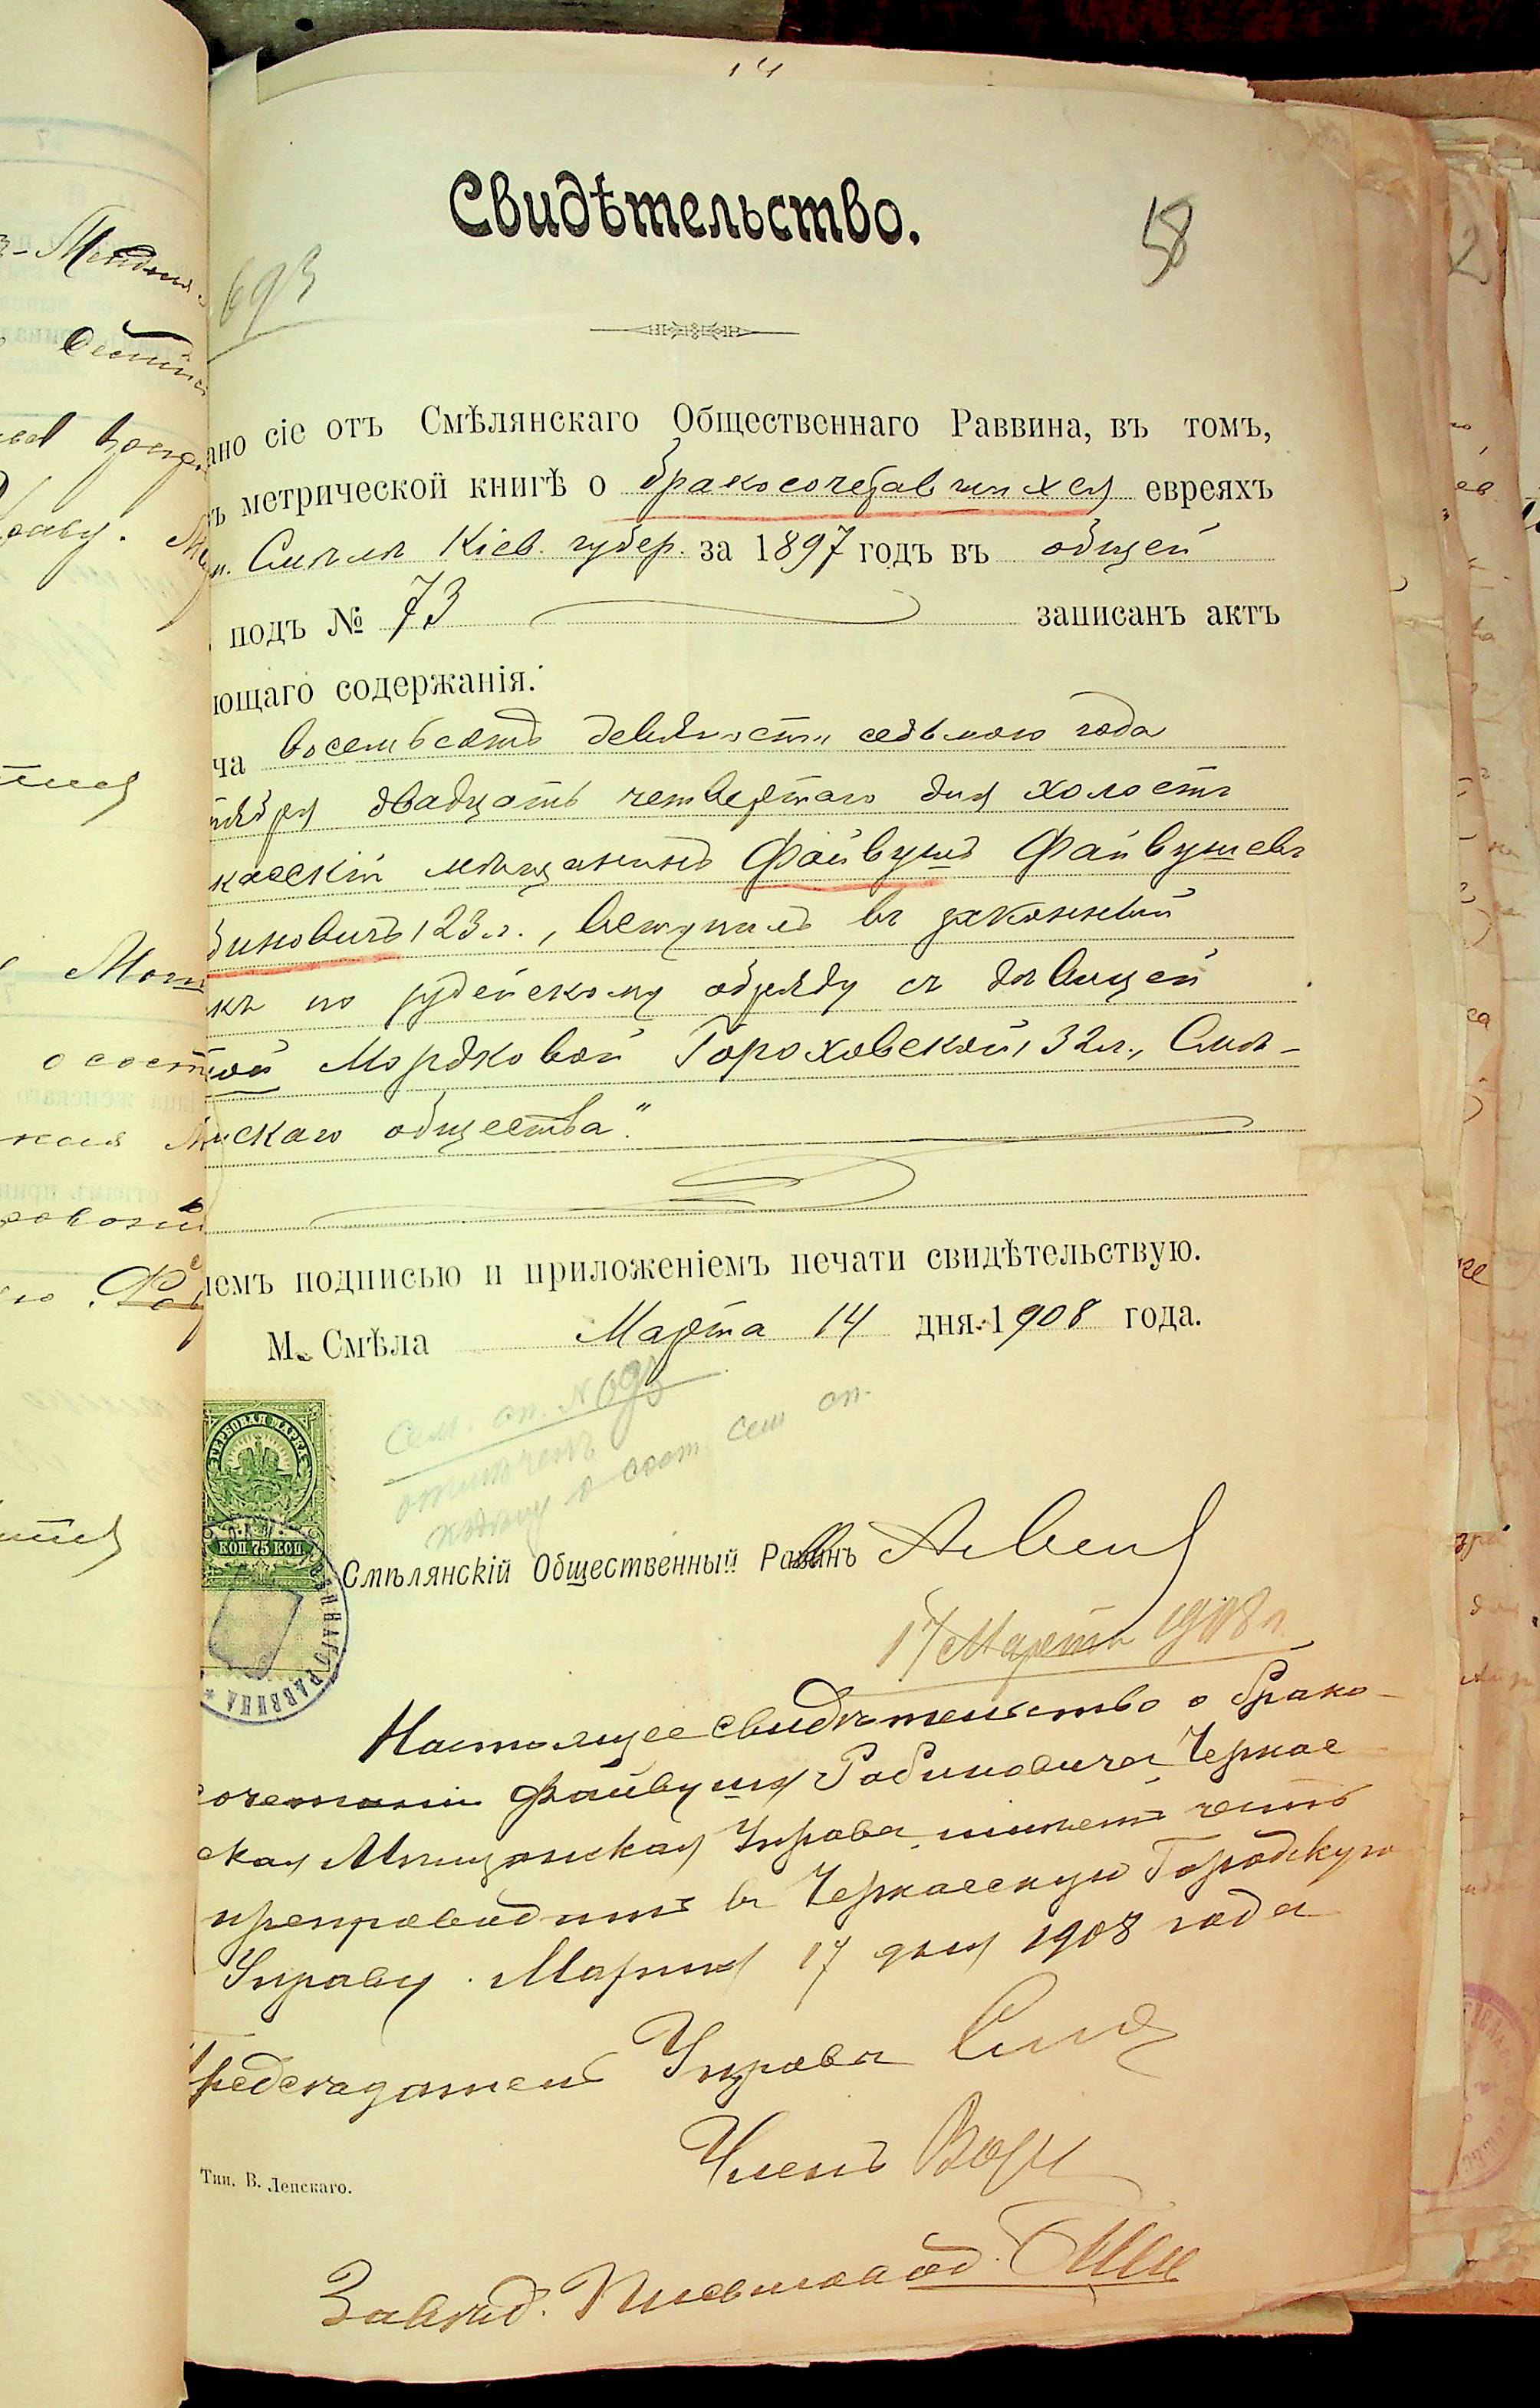 14
Свидѣтельство.
58
693
ано сіе отъ Смѣлянскаго Общественнаго Раввина, въ томъ,
ъ метрической книгѣ о бракосочетавшихся евреяхъ
м. Смѣлѣ Кіев. губер. за 1897 годъ въ общей
подъ № 73 записанъ актъ
ющаго содержанія:
ча восемьсотъ девяносто седьмого года
тября двадцать четвертаго дня холостъ
касскій мѣщанинъ Файвушъ Файвушевъ
биновичъ, 23 л., вступилъ въ законный
къ по іудейскому обряду съ дѣвицей
ой Мордковой Гороховской, 32 л., Смѣ-
нскаго общества".
іемъ подписью и приложеніемъ печати свидѣтельствую.
М. Смѣла Марта 14 дня 1908 года.
Сем. сп. № 693
отмѣченъ
сост сем сп.
ГЕРБОВАЯ МАРКА
КОП 75 КОП
ННАГО РАВВИНА
Смѣлянскій Общественный Равинъ
17 Марта 1908 г.
Настоящее свидѣтельство о брако-
сочетаніи Файвуша Рабиновича Черкас
ская Мѣщанская Управа имѣетъ честь
препроводить въ Черкасскую Городскую
Управу. Марта 17 дня 1908 года
Предсѣдатель Управы
Членъ
Тип. В. Лепскаго.
Завѣд. Письмовод.